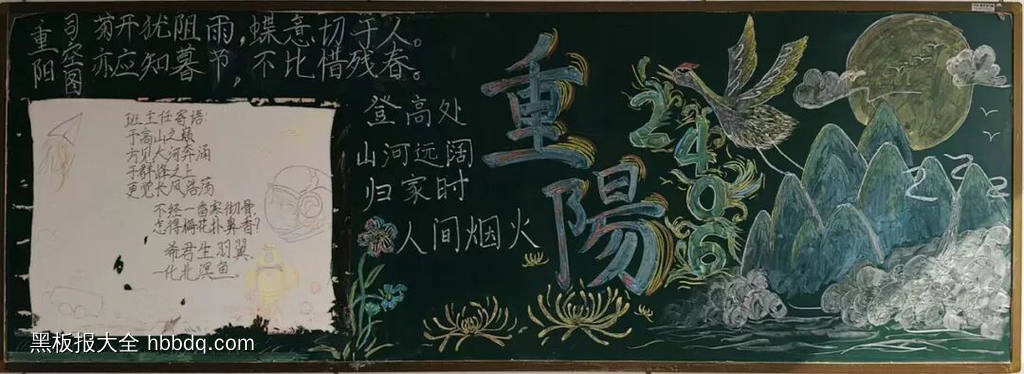 重阳
司空图
菊开犹阻雨，蝶意切于人。
亦应知暮节，不比惜残春。
班主任寄语：
于高山之巅
方见大河奔涌
于群峰之上
更觉长风浩荡
不经一番寒彻骨，
怎得梅花扑鼻香？
希君生羽翼，
一化北溟鱼。
登高处
山河远阔
归家时
人间烟火
重陽
2406
黑板报大全 hbbdq.com